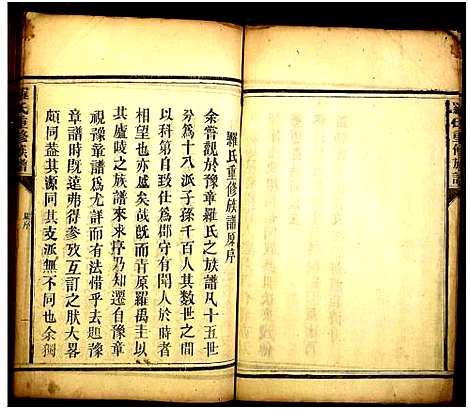 羅氏重修族譜
羅氏重修族譜原序
余嘗觀於豫章羅氏之族譜凡十五世
分為十八派子孫千百人其數世之
以科第自奮仕為郡守有聞人於時者
其望也亦盛矣哉既而青原羅禹圭以
其廬陵之族譜來求序乃知遷自豫章
視豫章譜爲尤詳而有法惜乎去豫
章譜時既遠弗得參攷互訂之肰大畧
頗同葢其源同其支派無不同也余獨
羅氏重修族譜
原序